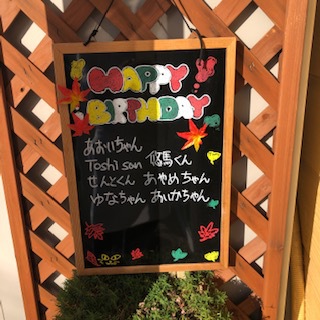 HAPPY
BIRTHDAY
あおいちゃん
Toshi san 悠馬くん
せんとくん あやめちゃん
ゆなちゃん あいかちゃん